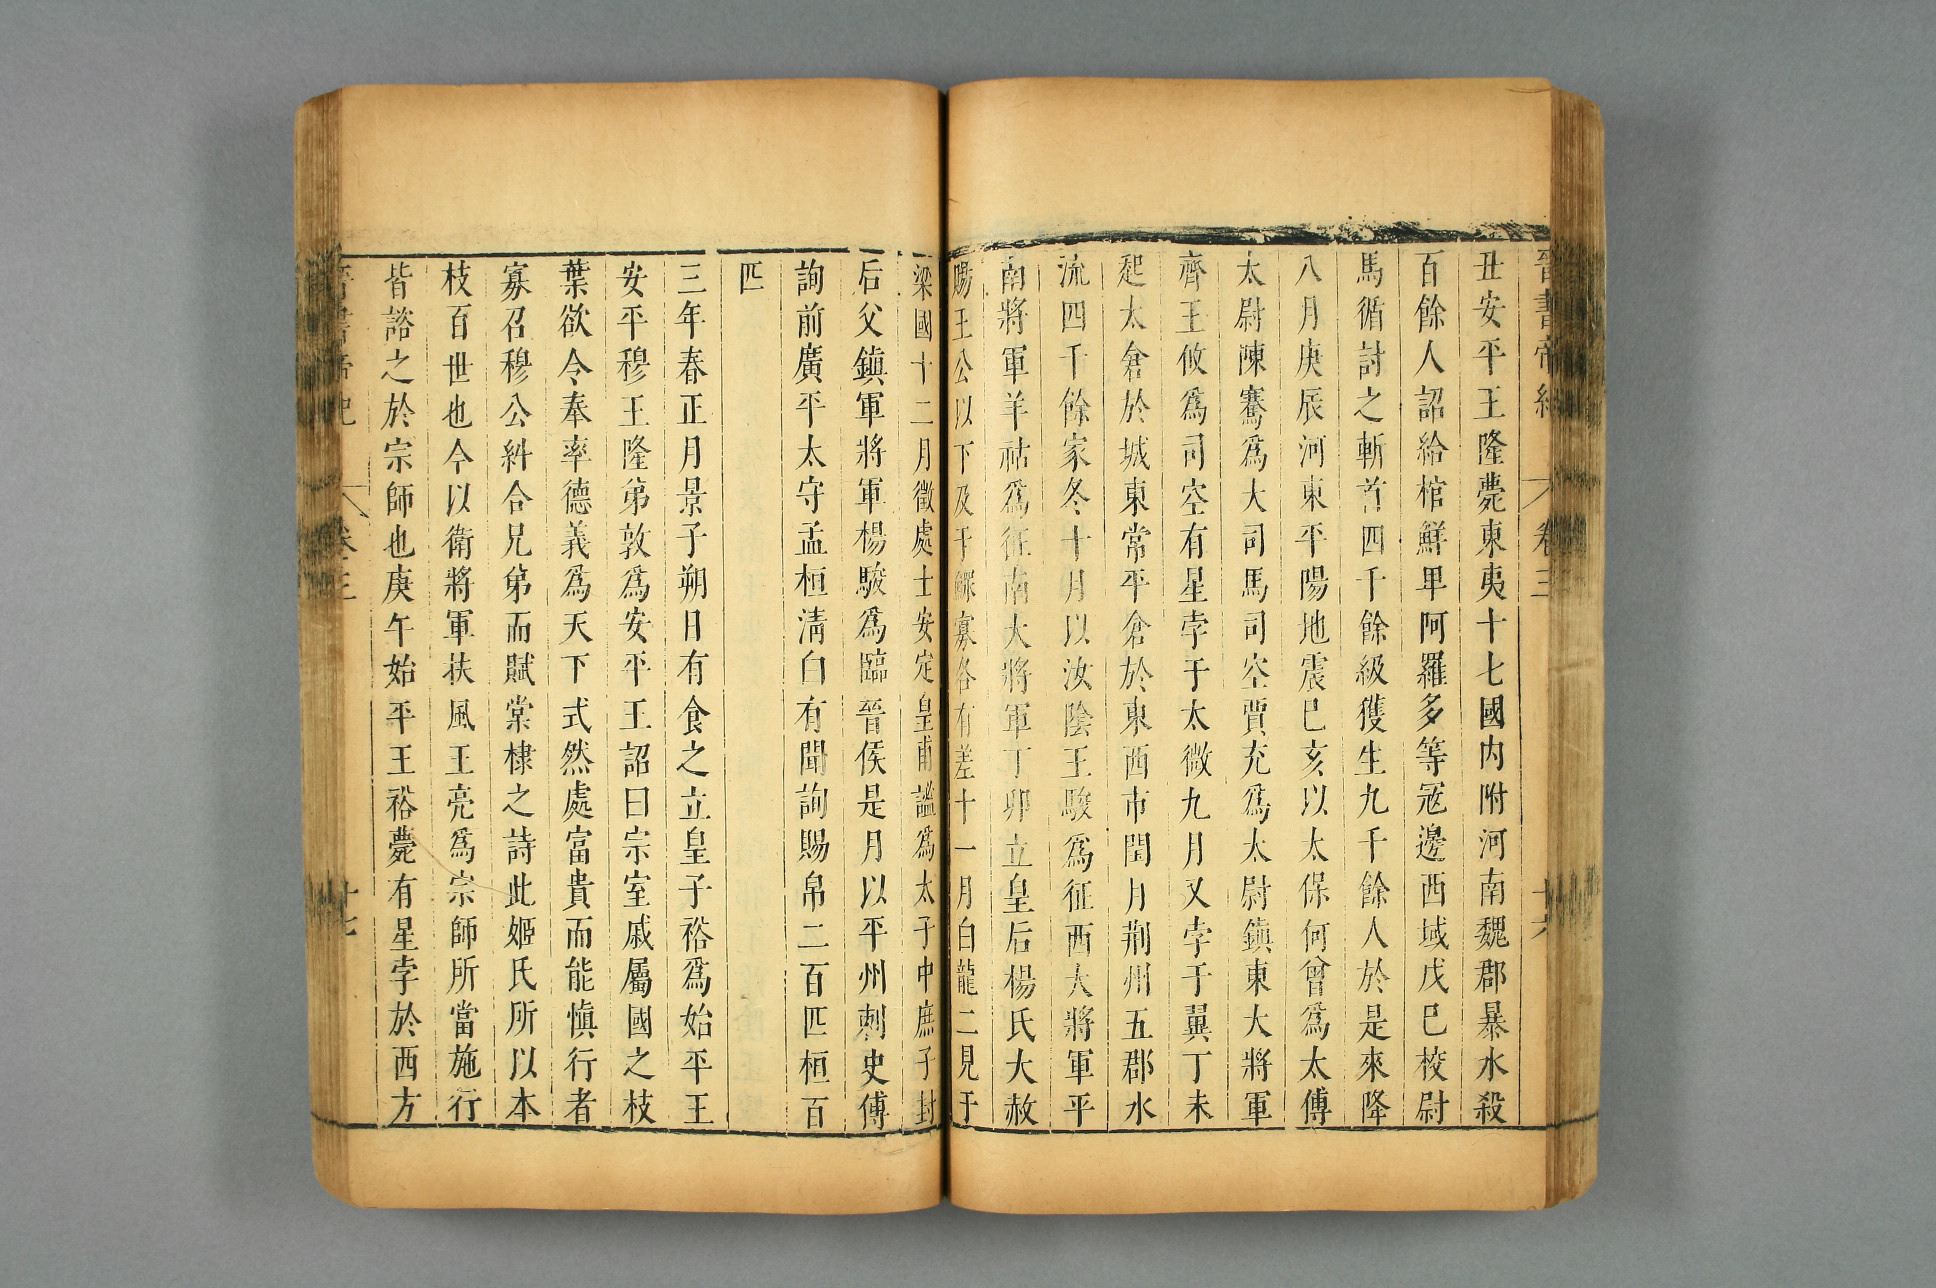 晉書帝紀 卷三 十六
丑安平王隆薨東夷十七國内附河南魏郡暴水殺
百餘人詔給棺鮮卑阿羅多等寇邊西域戊巳校尉
馬循討之斬首四千餘級獲生九千餘人於是來降
八月庚辰河東平陽地震巳亥以太保何曾爲太傅
太尉陳騫爲大司馬司空賈充爲太尉鎮東大將軍
齊王攸爲司空有星孛于太微九月又孛于翼丁未
起太倉於城東常平倉於東西市閏月荆州五郡水
流四千餘家冬十月以汝陰王駿爲征西大將軍平
南將軍羊祜爲征南大將軍丁卯立皇后楊氏大赦
賜王公以下及于鰥寡各有差十一月白龍二見于
梁國十二月徵處士安定皇甫謐爲太子中庶子封
后父鎮軍將軍楊駿爲臨晉侯是月以平州刺史傅
詢前廣平太守孟桓清白有聞詢賜帛二百匹桓百
匹
三年春正月景子朔日有食之立皇子裕爲始平王
安平穆王隆弟敦爲安平王詔曰宗室戚屬國之枝
葉欲令奉率德義爲天下式然處富貴而能慎行者
寡召穆公糾合兄弟而賦棠棣之詩此姬氏所以本
枝百世也今以衛將軍扶風王亮爲宗師所當施行
皆諮之於宗師也庚午始平王裕薨有星孛於西方
晉書帝紀 卷三 十七